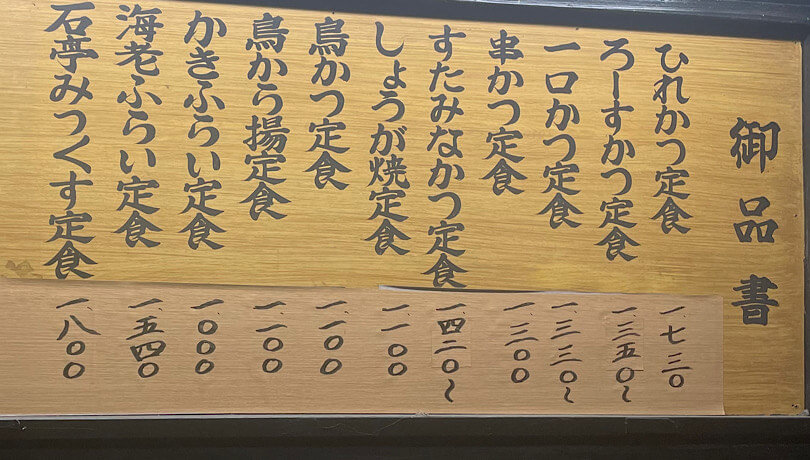 御品書
ひれかつ定食 一、七三〇
ろーすかつ定食 一、三五〇～
一口かつ定食 一、三三〇～
串かつ定食 一、三〇〇
すたみなかつ定食 一、四二〇～
しょうが焼定食 一、一〇〇
鳥かつ定食 一、一〇〇
鳥から揚定食 一、一〇〇
かきふらい定食 一、〇〇〇
海老ふらい定食 一、五四〇
石亭みっくす定食 一、八〇〇